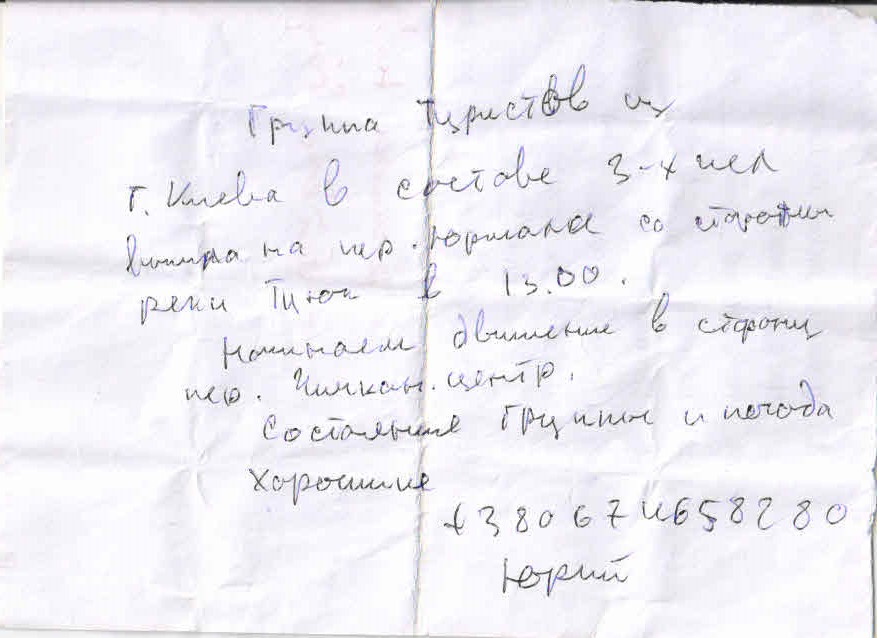 Группа туристов из
г. Киева в составе 3-х чел
вышла на пер. Юрмала со стороны
реки Тцюи в 13.00.
Начинаем движение в сторону
пер. Чимкан. центр.
Состояние группы и погода
хорошие
+380674658280
Юрий